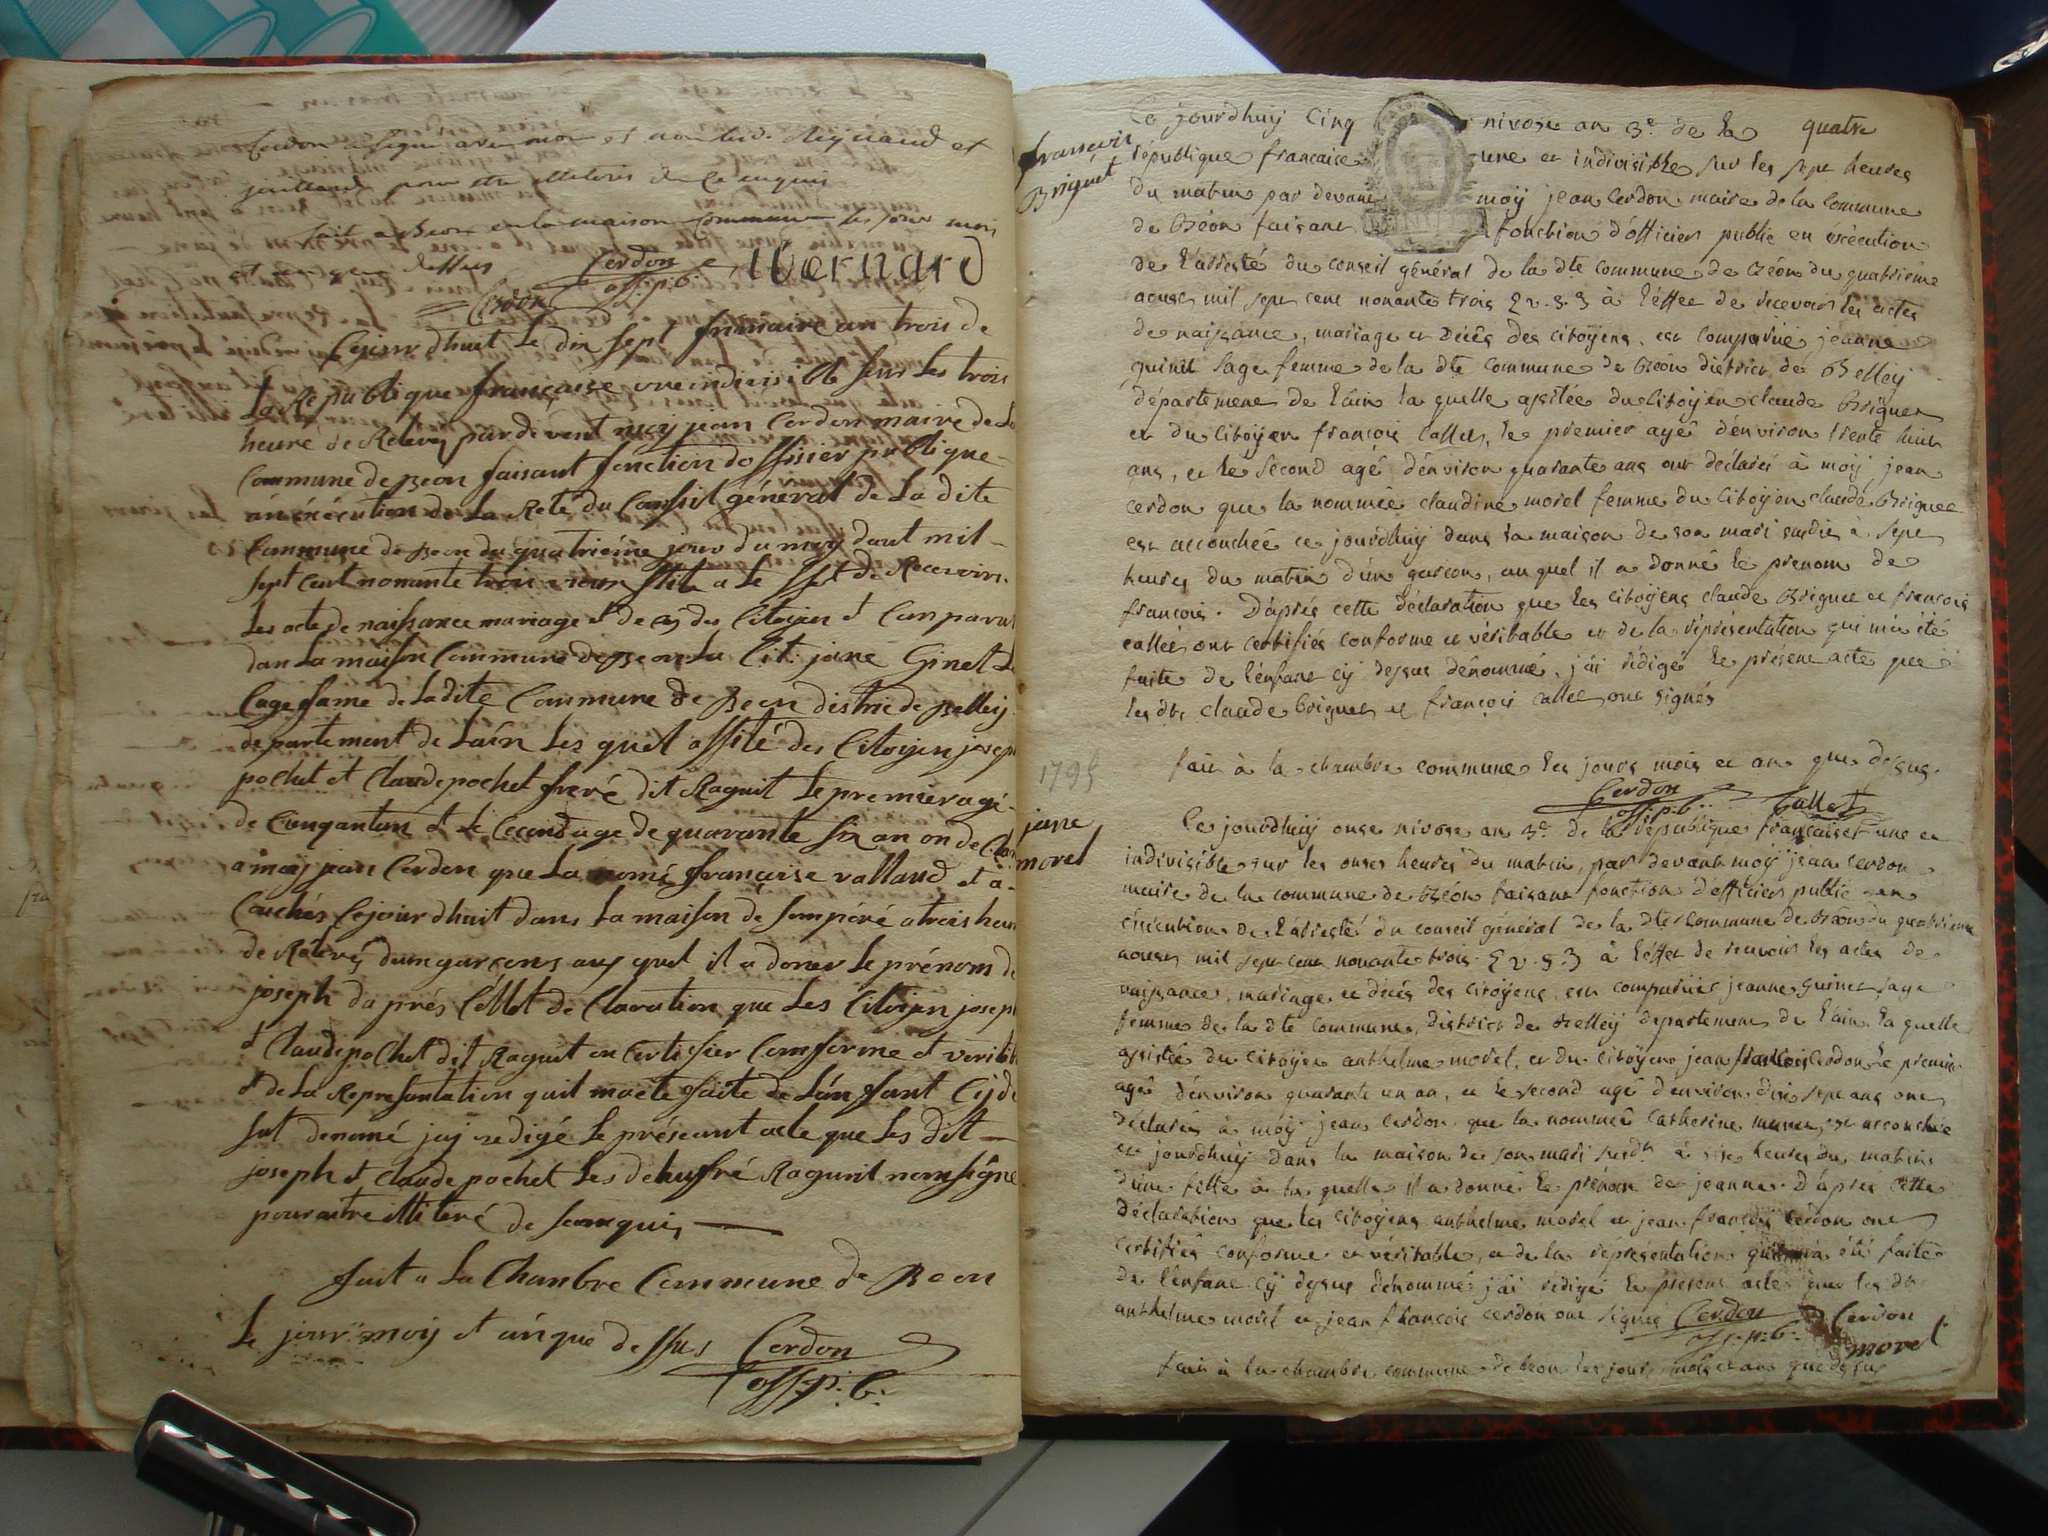 Cerdon a signé avec moi et non led. Reynaud et
pour etre illiteres de ce enquis
fait a Beon en la maison Commune les jour mois
et an que dessus Cerdon off. p. b. Bernard
Cerdon
Cejourdhuit Le dix sept frimaire an trois de
La Republique française une indivisible sur Les trois
heure de Relevé pardevent moy jean Cerdon maire de La
Commune de Beon faisant fonction dofficier publique
en éxécution de La Reté du Conseil général de La dite
Commune de Beon du quatriéme jour du moy daut mil
sept cent nonante trois vieux stile a Le ffet de Recevoire
Les acte de naissance mariage et de cés des Citoyen et Comparut
dan La maison Commune de Beon La Cit. jane Ginet La
Cage fame de La dite Commune de Beon distric de Belley
departement de Laín Les quel assité des Citoyen joseph
pochet et Claude pochet freré dit Raguit Le premier agé
de Cinquantan et Le Cecond age de quarante six an on de Clar
a moy jean Cerdon que La nomé françoise rallaud et a
Couchés Cejourdhuit dans La maison de sonpéré a trois heur
de Relevés dun garçons auquel il a doner Le prénom de
joseph da prés Cettet de Claration que Les Citoyen joseph
et Claude pochet dit Raguit on Certifier Conforme et veritab
et de La Representation quil maété faite de Lénfant Cijde
sut denomé jay redigé Le préseant acte que Les dit
joseph et Claude pochet Les de hufré Raguit nomsigné
pour aitre illiteré de se enquis
fait a La Chanbre Commune de Beon
Le jour moy et an que dessus Cerdon
off. p. b.
quatre
françois
Briguet
Ce jourdhuy cinq nivose an 3e. de la
république francaise une et indivisible sur les sept heures
du matin par devant moy jean Cerdon maire de la Commune
de Béon faisant fonction d'officier public en exécution
de l'arresté du conseil général de la dte commune de Béon du quatrieme
aoust mil sept cent nonante trois [v. s.] à l'effet de recevoir les actes
de naissance, mariage et décès des citoyens, est comparue jeanne
guinet sage femme de la dte commune de Béon district de Belley
département de l'ain la quelle assitée du citoyen claude Briguet
et du citoyen françois Callet, le premier agé d'énviron trente huit
ans, et le second agé d'énviron quarante ans ont déclaré à moy jean
cerdon que la nommée claudine morel femme du citoyen claude Briguet
est accouchée ce jourdhuy dans la maison de son mari susdit à sept
heures du matin d'un garcon, auquel il a donné le prenom de
françois. D'après cette déclaration que les citoyens claude Briguet et françois
callet ont certifiée conforme et véritable et de la réprésentation qui m'a été
faite de l'énfant cy dessus dénommé, j'ai rédigé le présent acte que
les dts claude briguet et françois callet ont signés
fait à la chambre commune les jours mois et an que dessus.
Cerdon off. p. b. Callet
1795
jane
morel
Ce jourdhuy onse nivose an 3e. de la république française une et
indivisible sur les onses heures du matin, par devant moy jean Cerdon
maire de la commune de Béon faisant fonction d'officier public en
éxécution de l'arresté du conseil général de la dte commune de Béon du quatrieme
aoust mil sept cent nonante trois [v. s.] à l'effet de recevoir les actes de
naissance, mariage et décès des citoyens, est comparue jeanne guinet sage
femme de la dte commune, district de Belley departement de l'ain la quelle
assistée du citoyen anthelme morel, et du citoyen jean françois Cerdon le premier
agé d'énviron quarante un an, et le second agé d'environ dix sept ans ont
déclaré à moy jean Cerdon que la nommée Catherine est accouchée
ce jourdhuy dans la maison de son mari susdt à heures du matin
d'une fille à la quelle il a donné le prénom de jeanne. D'après cette
déclaration que les citoyens anthelme morel et jean françois Cerdon ont
certifiés conforme et véritable, et de la réprésentation qui m'a été faite
de l'enfant cy dessus dénommé j'ai rédigé le present acte que les dt
anthelme morel et jean françois cerdon ont signés Cerdon off. p. b. Cerdon
morel
fait à la chambre commune de beon les jour mois et an que dessus